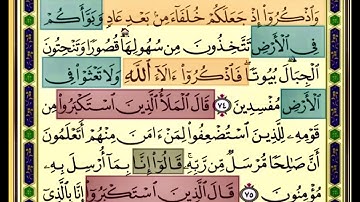 وَاذْكُرُوٓا۟ إِذْ جَعَلَكُمْ خُلَفَآءَ مِنۢ بَعْدِ عَادٍ وَبَوَّأَكُمْ
فِى ٱلْأَرْضِ تَتَّخِذُونَ مِن سُهُولِهَا قُصُورًا وَتَنْحِتُونَ
ٱلْجِبَالَ بُيُوتًا ۖ فَٱذْكُرُوٓا۟ ءَالَآءَ ٱللَّهِ وَلَا تَعْثَوْا۟ فِى
ٱلْأَرْضِ مُفْسِدِينَ ٧٤ قَالَ ٱلْمَلَأُ ٱلَّذِينَ ٱسْتَكْبَرُوا۟
مِن قَوْمِهِۦ لِلَّذِينَ ٱسْتُضْعِفُوا۟ لِمَنْ ءَامَنَ مِنْهُمْ أَتَعْلَمُونَ
أَنَّ صَٰلِحًا مُّرْسَلٌ مِّن رَّبِّهِۦ ۚ قَالُوٓا۟ إِنَّا بِمَآ أُرْسِلَ بِهِۦ
مُؤْمِنُونَ ٧٥ قَالَ ٱلَّذِينَ ٱسْتَكْبَرُوٓا۟ إِنَّا بِٱلَّذِىٓ